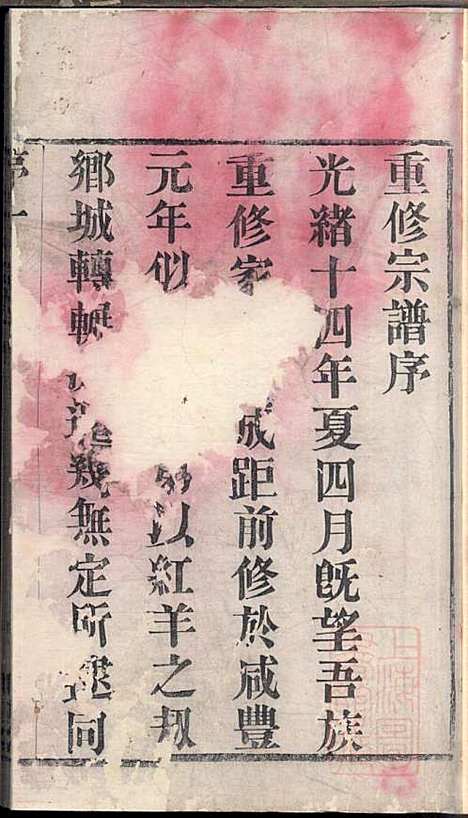 重修宗譜序
光緒十四年夏四月既望吾族
重修家成距前修於咸豐
元年似以紅羊之刼
鄉城轉幾無定所逮同
序一